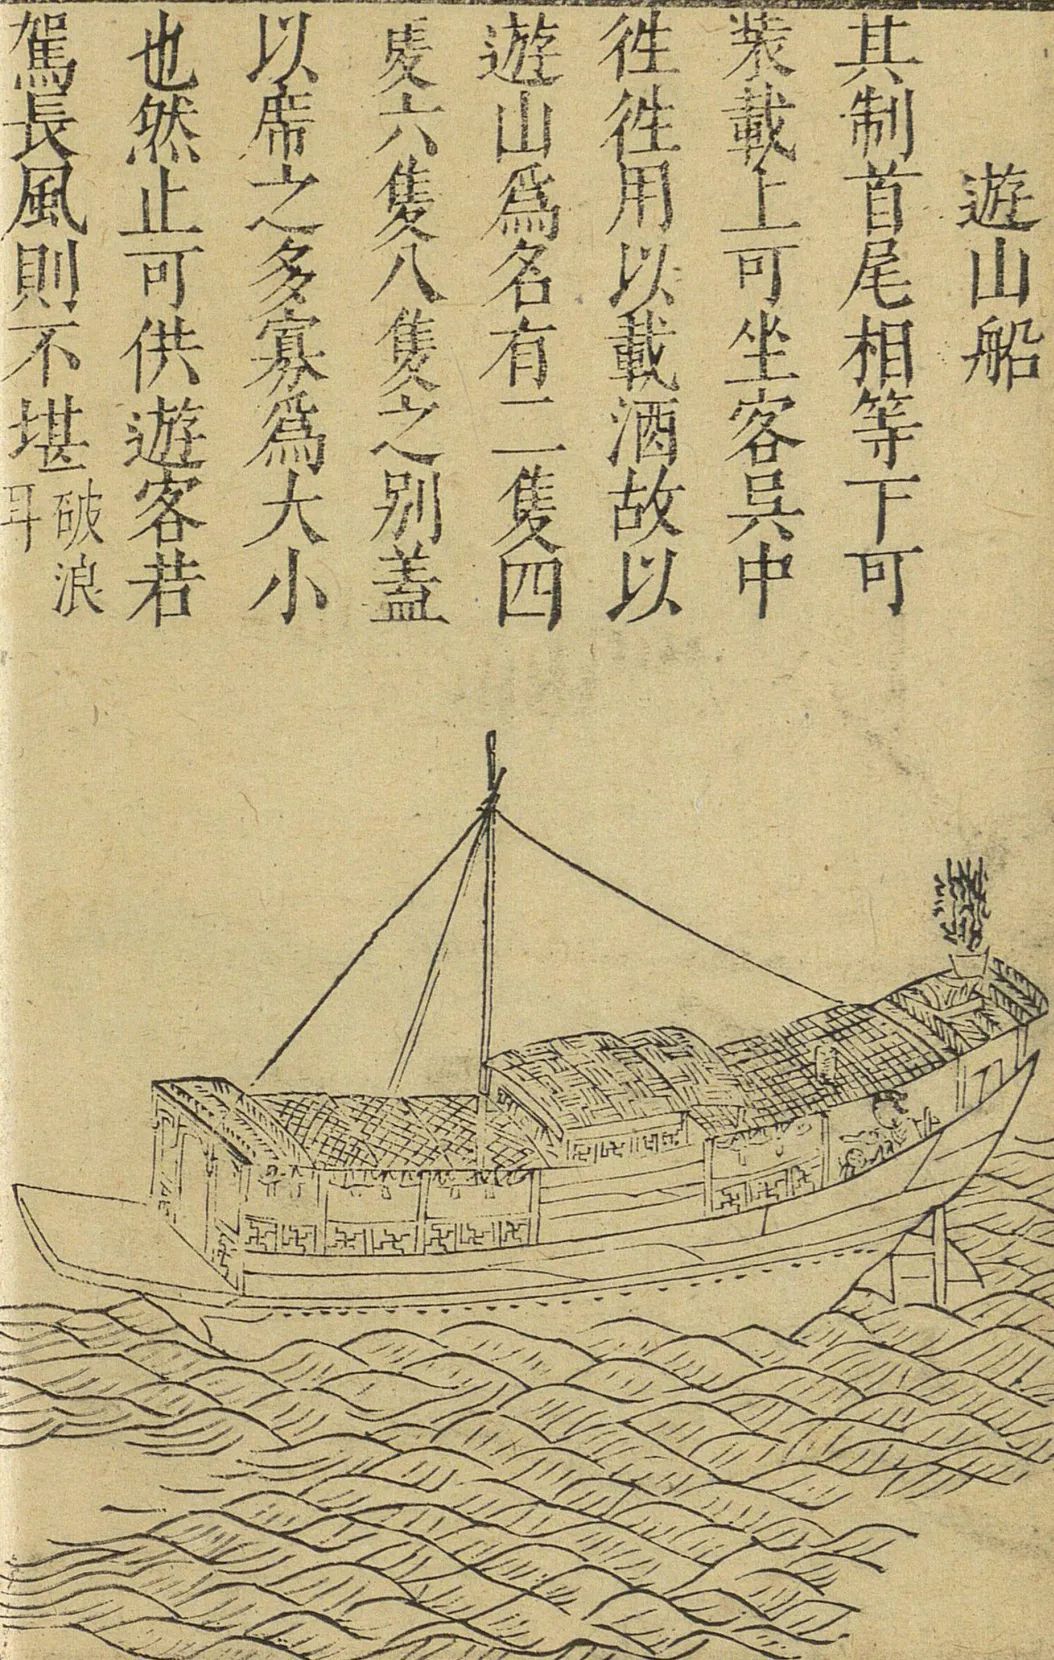 遊山船
其制首尾相等下可
裝載上可坐客吳中
徃徃用以載酒故以
遊山爲名有二隻四
隻六隻八隻之别蓋
以席之多寡爲大小
也然止可供遊客若
駕長風則不堪破浪耳